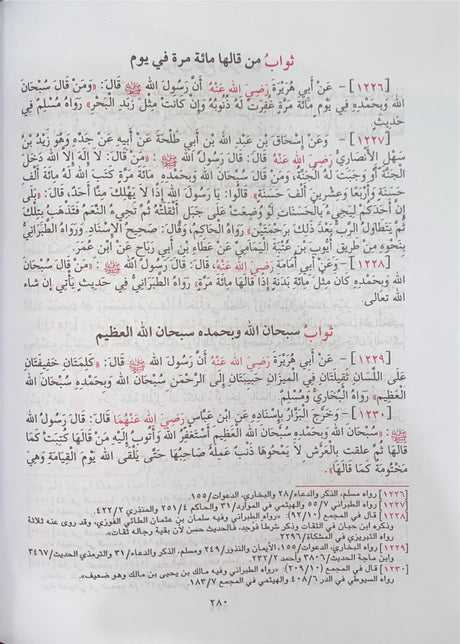 ثوابُ من قالها مائة مرة في يوم
[١٢٢٦] - عَنْ أَبِي هُرَيْرَةَ رَضِيَ اللهُ عَنْهُ أَنَّ رَسُولَ اللهِ ﷺ قَالَ: «وَمَنْ قَالَ سُبْحَانَ
اللهِ وَبِحَمْدِهِ فِي يَوْمٍ مِائَةَ مَرَّةٍ غُفِرَتْ لَهُ ذُنُوبُهُ وَإِنْ كَانَتْ مِثْلَ زَبَدِ الْبَحْرِ» رَوَاهُ مُسْلِمٌ فِي
حَدِيثٍ.
[١٢٢٧] - وَعَنْ إِسْحَاقَ بْنِ عَبْدِ اللهِ بْنِ أَبِي طَلْحَةَ عَنْ أَبِيهِ عَنْ جَدِّهِ وَهُوَ زَيْدُ بْنُ
سَهْلٍ الأَنْصَارِيُّ رَضِيَ اللهُ عَنْهُ قَالَ: قَالَ رَسُولُ اللهِ ﷺ: «مَنْ قَالَ: لاَ إِلَهَ إِلاَّ اللهُ دَخَلَ
الْجَنَّةَ أَوْ وَجَبَتْ لَهُ الْجَنَّةُ، وَمَنْ قَالَ سُبْحَانَ اللهِ وَبِحَمْدِهِ مِائَةَ مَرَّةٍ كَتَبَ اللهُ لَهُ مِائَةَ أَلْفِ
حَسَنَةٍ وَأَرْبَعًا وَعِشْرِينَ أَلْفَ حَسَنَةٍ». قَالُوا: يَا رَسُولَ اللهِ إِذًا لاَ يَهْلِكَ مِنَّا أَحَدٌ. قَالَ: «بَلَى
إِنَّ أَحَدَكُمْ لَيَجِيءُ بِالْحَسَنَاتِ لَوْ وُضِعَتْ عَلَى جَبَلٍ أَثْقَلَتْهُ ثُمَّ تَجِيءُ النِّعَمُ فَتَذْهَبُ بِتِلْكَ
ثُمَّ يَتَطَاوَلُ الرَّبُّ بَعْدَ ذَلِكَ بِرَحْمَتِهِ» رَوَاهُ الْحَاكِمُ، وَقَالَ: صَحِيحُ الإِسْنَادِ. وَرَوَاهُ الطَّبَرَانِيُّ
بِنَحْوِهِ مِنْ طَرِيقِ أَيُّوبَ بْنِ عُتْبَةَ الْيَمَامِيِّ عَنْ عَطَاءِ بْنِ أَبِي رَبَاحٍ عَنْ ابْنِ عُمَرَ.
[١٢٢٨] - وَعَنْ أَبِي أُمَامَةَ رَضِيَ اللهُ عَنْهُ، قَالَ: قَالَ رَسُولُ اللهِ ﷺ: «مَنْ قَالَ سُبْحَانَ
اللهِ وَبِحَمْدِهِ كَانَ مِثْلَ مِائَةِ بَدَنَةٍ إِذَا قَالَهَا مِائَةَ مَرَّةٍ» رَوَاهُ الطَّبَرَانِيُّ فِي حَدِيثٍ يَأْتِي إن شاء
الله تعالى.
ثوابُ سبحان الله وبحمده سبحان الله العظيم
[١٢٢٩] - عَنْ أَبِي هُرَيْرَةَ رَضِيَ اللهُ عَنْهُ أَنَّ رَسُولَ اللهِ ﷺ قَالَ: «كَلِمَتَانِ خَفِيفَتَانِ
عَلَى اللِّسَانِ ثَقِيلَتَانِ فِي الْمِيزَانِ حَبِيبَتَانِ إِلَى الرَّحْمَنِ سُبْحَانَ اللهِ وَبِحَمْدِهِ سُبْحَانَ اللهِ
الْعَظِيمِ» رَوَاهُ الْبُخَارِيُّ وَمُسْلِمٌ.
[١٢٣٠] - وَخَرَّجَ الْبَزَّارُ بِإِسْنَادِهِ عَنِ ابْنِ عَبَّاسٍ رَضِيَ اللهُ عَنْهُمَا قَالَ: قَالَ رَسُولُ اللهِ
ﷺ: «سُبْحَانَ اللهِ وَبِحَمْدِهِ سُبْحَانَ اللهِ الْعَظِيمِ أَسْتَغْفِرُ اللهَ وَأَتُوبُ إِلَيْهِ مَنْ قَالَهَا كُتِبَتْ كَمَا
قَالَهَا ثُمَّ عُلِّقَتْ بِالْعَرْشِ لاَ يَمْحُوهَا ذَنْبٌ عَمِلَهُ صَاحِبُهَا حَتَّى يَلْقَى اللهَ يَوْمَ الْقِيَامَةِ وَهِيَ
مَخْتُومَةٌ كَمَا قَالَهَا».
[١٢٢٦] رواه مسلم، الذكر والدعاء/٢٨ والبخاري، الدعوات/١٥٥.
[١٢٢٧] رواه الطبراني ٥٥/٧ والهيثمي في الموارد/٣١ والحاكم ٢٥١/٤ والمنذري ٤٢٢/٢.
[١٢٢٨] قال في المجمع (٩٢/١٠): «رواه الطبراني وفيه سلمان بن عثمان الطائي الفوزي، وقد روى عنه ثلاثة
وذكره ابن حبان في الثقات وذكر شرطاً فوُجد، فالحديث حسن لأن بقية رجاله ثقات».
رواه التبريزي في المشكاة/٢٢٩٦.
[١٢٢٩] رواه البخاري، الدعوات/١٥٥، الأيمان والنذور/٢٤٩ ومسلم، الذكر والدعاء/٣١ والترمذي الحديث/٣٤٦٧
وابن ماجة الحديث/٣٨٠٦ وأحمد ٢٣٢/٢.
[١٢٣٠] قال في المجمع (٢٠٩/١٠): «رواه الطبراني وفيه مالك بن يحيى بن مالك وهو ضعيف».
ذكره السيوطي في الدر ٤٠٨/٦ والهيثمي في المجمع ١٨٣/٧.
٢٨٠